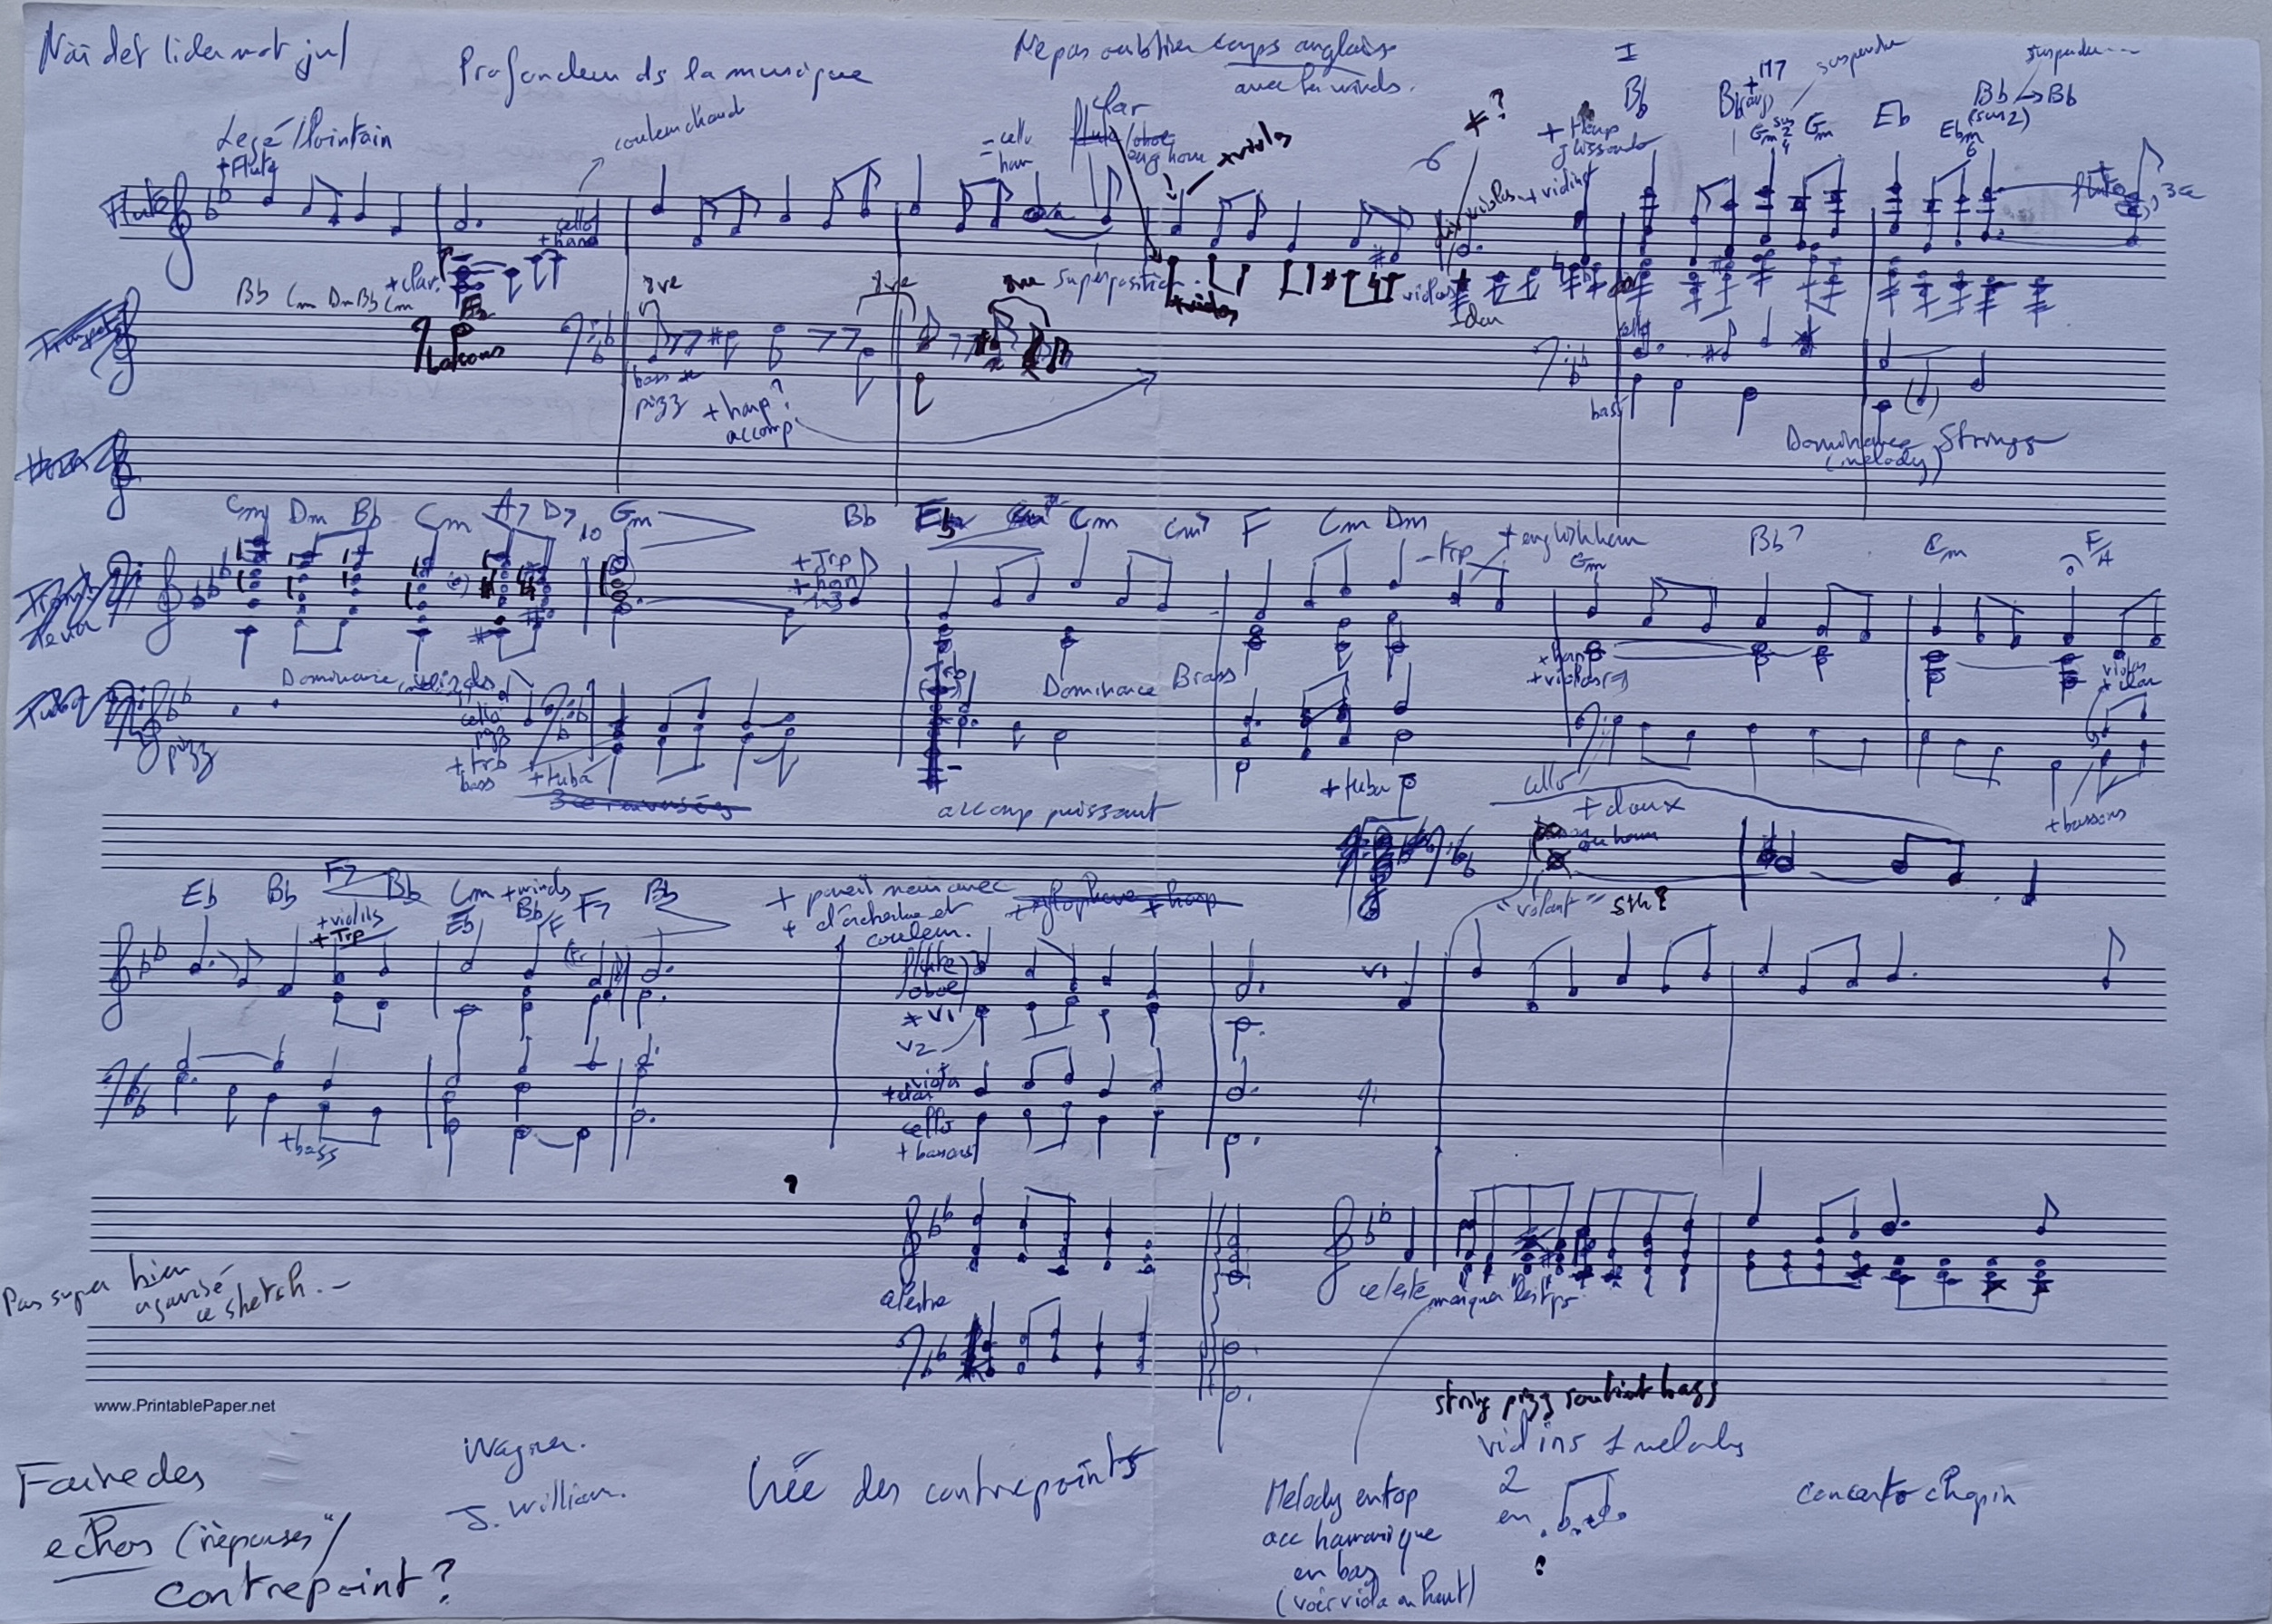 När det lider mot jul
Profondeur ds la musique
Ne pas oublier corps anglais
avec les winds.
I
suspendu
suspendu
Légé / lointain
+Flute
couleur chaud
- cello
horn
clar
flute/oboe
eng horn
+violas
*?
+ Harp
glissando
Bb
Bb
+M7
Gm
Gm
Eb
Ebm
6
Bb → Bb
(sus2)
Flute
cello
+horn
violas + violins
flute
+clar.
superposition
+violas
violas
Bb Cm Dm Bb Cm
bassons
8ve
8ve
8ve
bass
pizz
+ harp?
accomp.
cello
bass
Dominance Strings
(melody)
Cm Dm Bb Cm A7 D7 Gm
Bb
Eb
Cm
Cm7
F
Cm Dm
+Trp
+horn
1-3
-Trp
+ english horn
Gm
Bb7
Cm
F/A
Dominance winds
Dominance Brass
+horn
+violas
violas
+clar
Tuba
pizz
cello
pizz
+trb
bass
+tuba
accomp puissant
+tuba
cello
+ doux
+bassons
ou horn
"volant"
sth?
Eb Bb F7 Bb Cm +winds
Eb Bb/F F7 Bb
+violins
+Trp
+ pareil mais avec
+ d'orchestre et
couleur.
+ xylophone + harp
flute
oboe
+V1
V2
V1
viola
+clar
cello
+bassons
+bass
?
Pas super bien
organisé
ce sketch.
celesta
celeste
marquer les tps
www.PrintablePaper.net
string pizz soutient bass
violins 1 melody
2
en
?
Faire des
echos (réponses)/
contrepoint?
Wagner.
J. William.
Crée des contrepoints
Melody en top
acc harmonique
en bas
(voir viola en haut)
concerto chopin